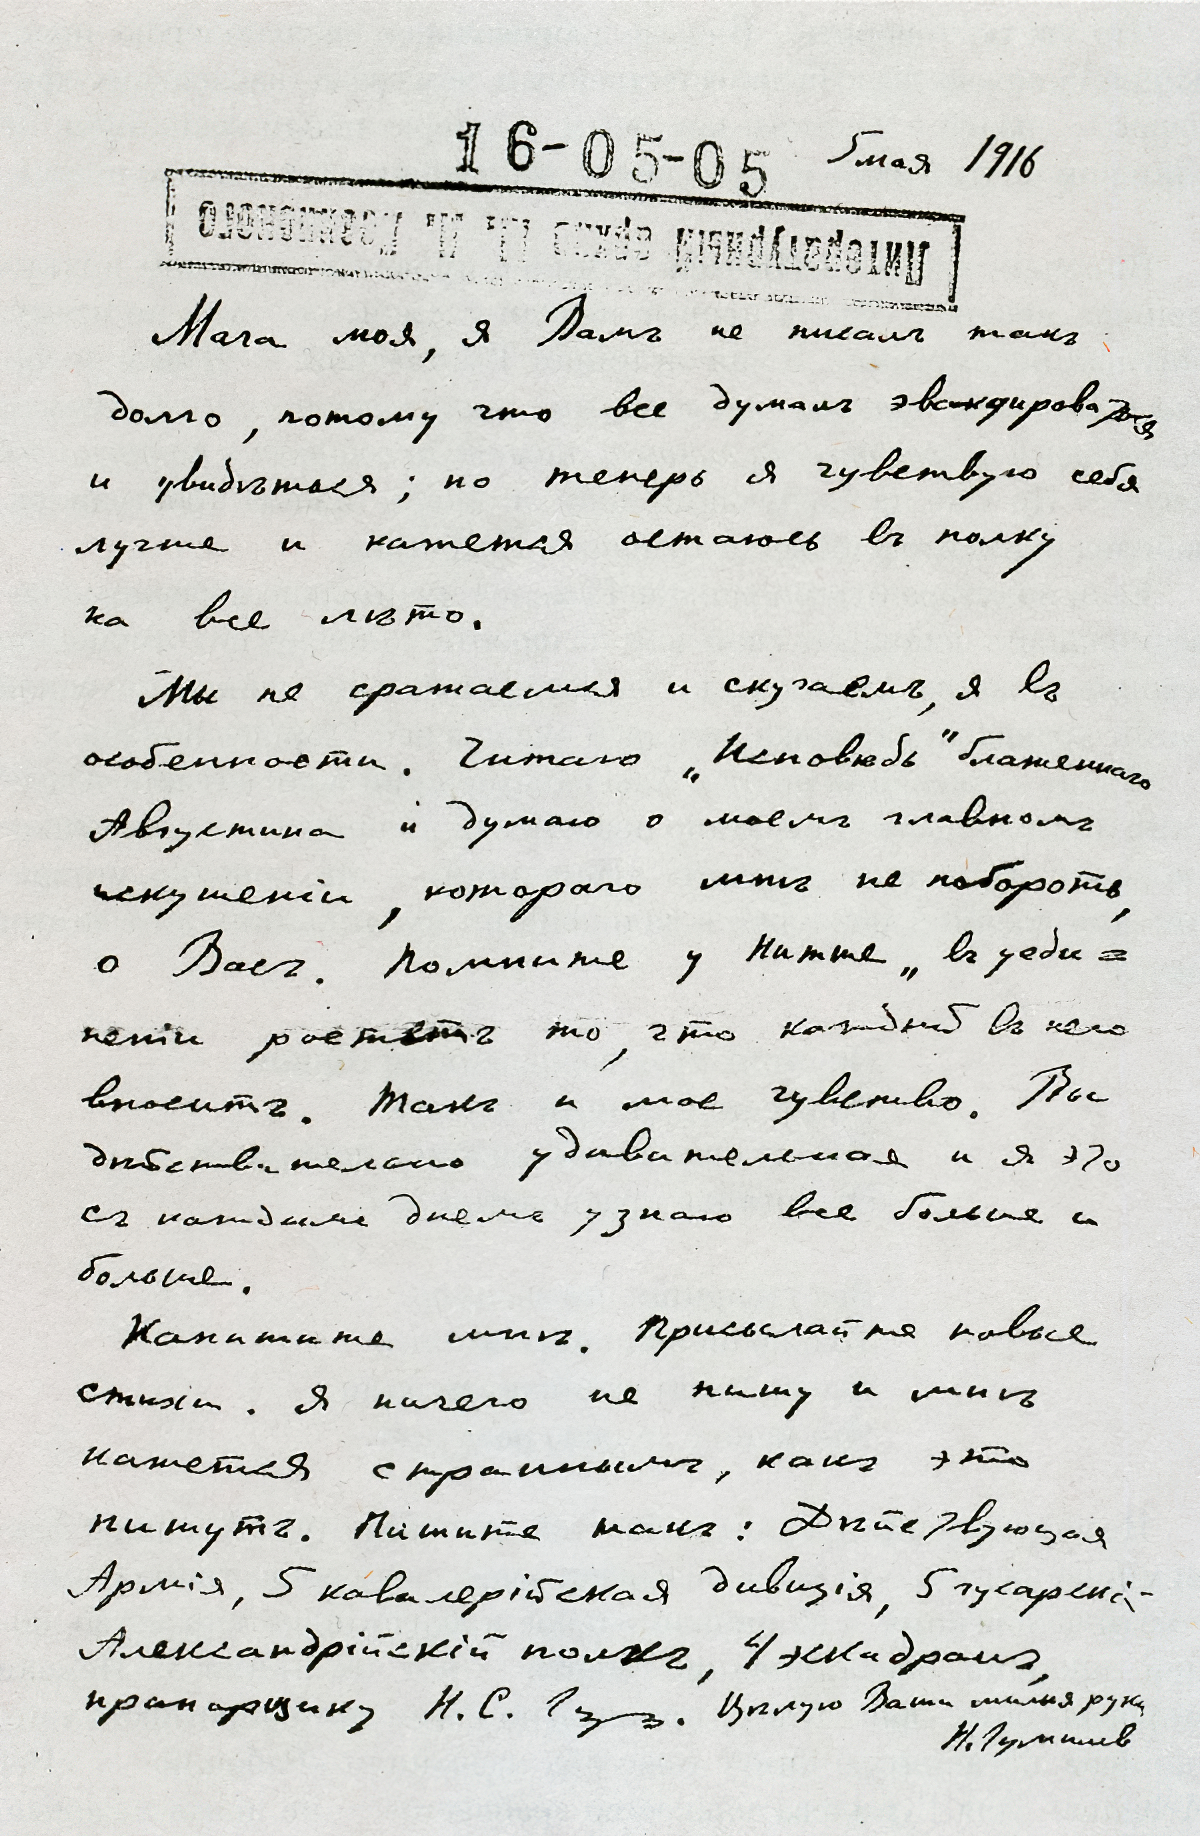 16-05-05 5 мая 1916
Литературный архив П. Н. Лузянского
Мага моя, я Вамъ не писалъ такъ
долго, потому что все думалъ эвакуироваться
и увидѣться; но теперь я чувствую себя
лучше и кажется остаюсь въ полку
на все лѣто.
Мы не сражаемся и скучаемъ, я въ
особенности. Читаю „Исповѣдь" блаженнаго
Августина и думаю о моемъ главномъ
искушеніи, котораго мнѣ не побороть,
о Васъ. Помните у Нитше „въ уеди=
неніи ростетъ то, что каждый въ него
вноситъ. Такъ и мое чувство. Вы
дѣйствительно удивительная и я это
съ каждымъ днемъ узнаю все больше и
больше.
Напишите мнѣ. Присылайте новые
стихи. Я ничего не пишу и мнѣ
кажется страннымъ, какъ это
пишутъ. Пишите такъ: Дѣйствующая
Армія, 5 кавалерійская дивизія, 5 гусарскій
Александрійскій полкъ, 4 эскадронъ,
прапорщику Н. С. Гумилеву. Цѣлую Ваши милыя руки
Н. Гумилев